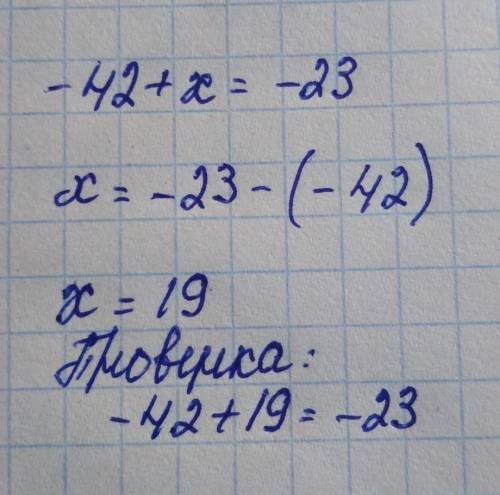 -42+x= -23
x= -23-(-42)
x = 19
Проверка:
-42+19= -23